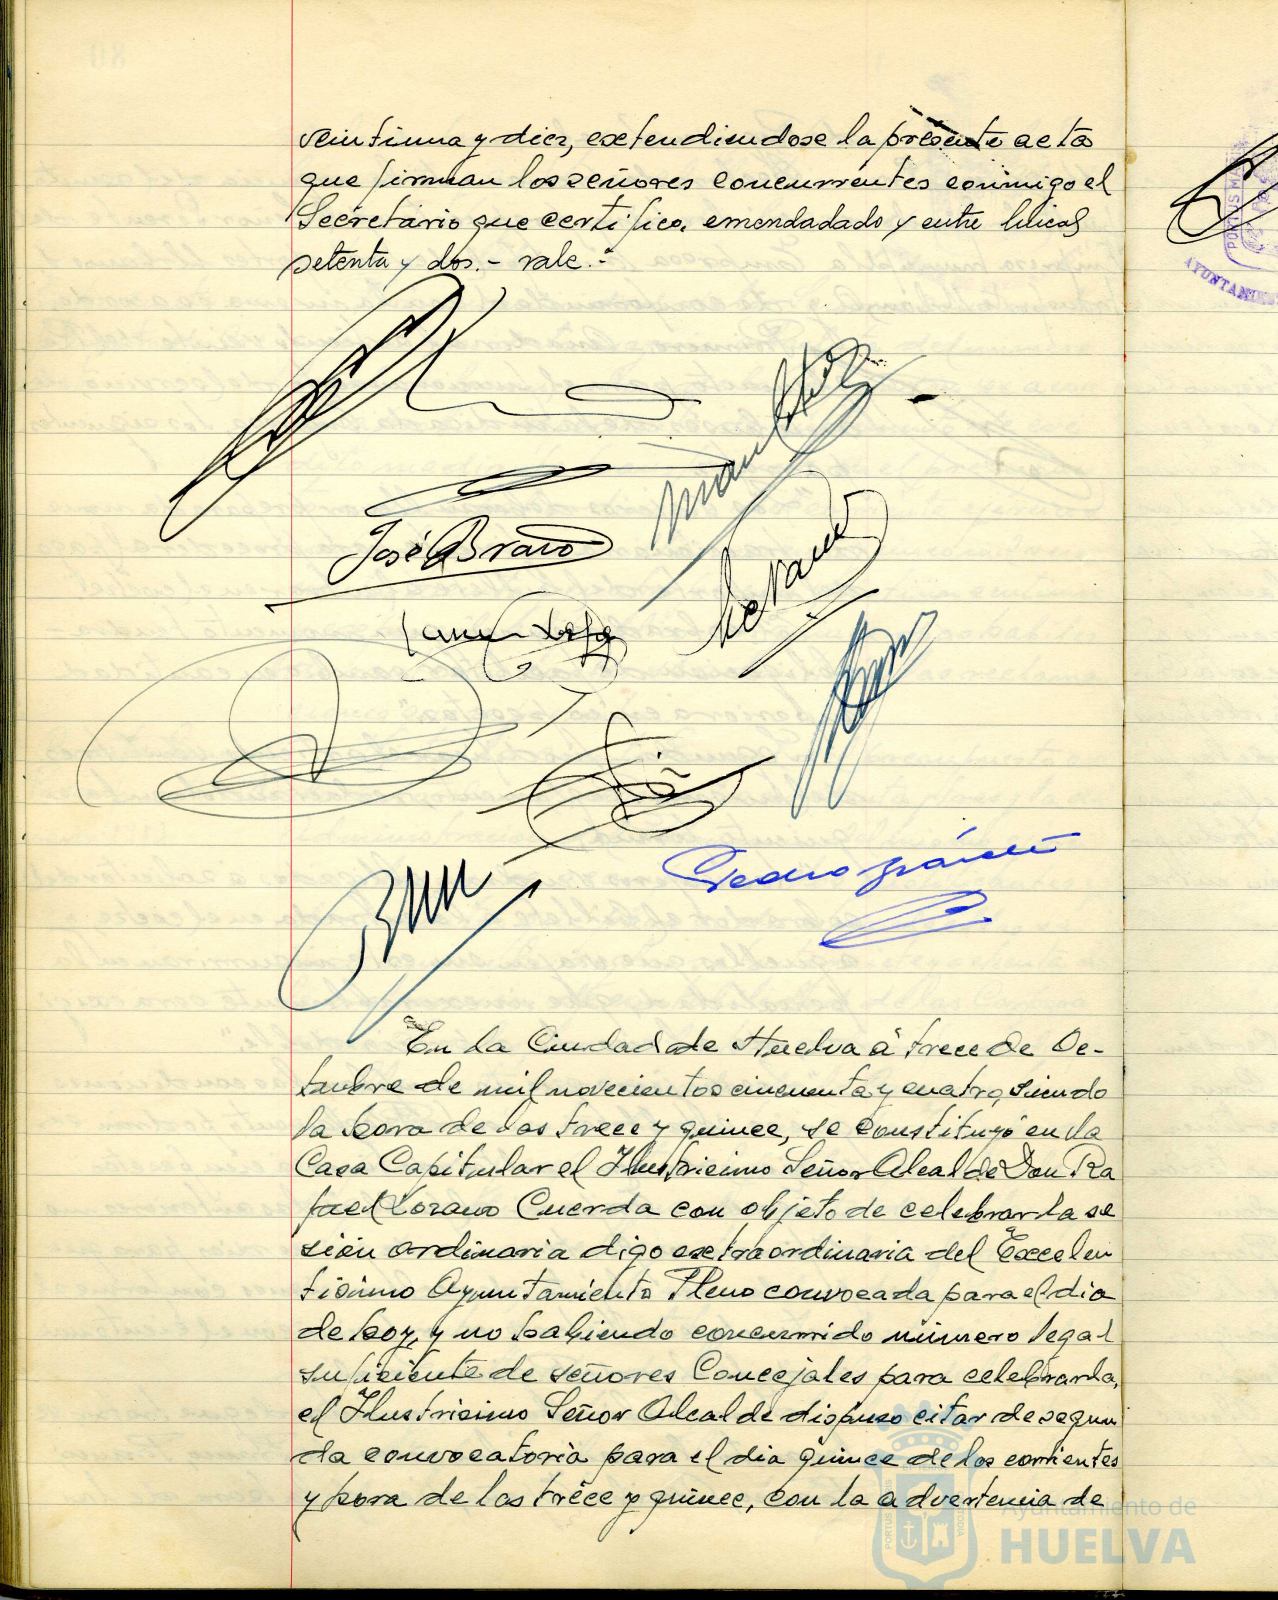 veintiuna y diez, extendiendose la presente acta
que firman los señores concurrentes conmigo el
Secretario que certifico. emendadado y entre lineas
setenta y dos.- vale.-
José Bravo
En la Ciudad de Huelva á trece de Oc-
tubre de mil novecientos cincuenta y cuatro, siendo
la hora de las trece y quince, se constituyó en la
Casa Capitular el Ilustrisimo Señor Alcalde Don Ra
fael Lozano Cuerda con objeto de celebrar la se
sión ordinaria digo extraordinaria del Excelen
tisimo Ayuntamiento Pleno convocada para el dia
de hoy, y no habiendo concurrido número legal
suficiente de señores Concejales para celebrarla,
el Ilustrisimo Señor Alcalde dispuso citar de segun
da convocatoria para el dia quince de los corrientes
y hora de las trece y quince, con la advertencia de
Ayuntamiento de
HUELVA